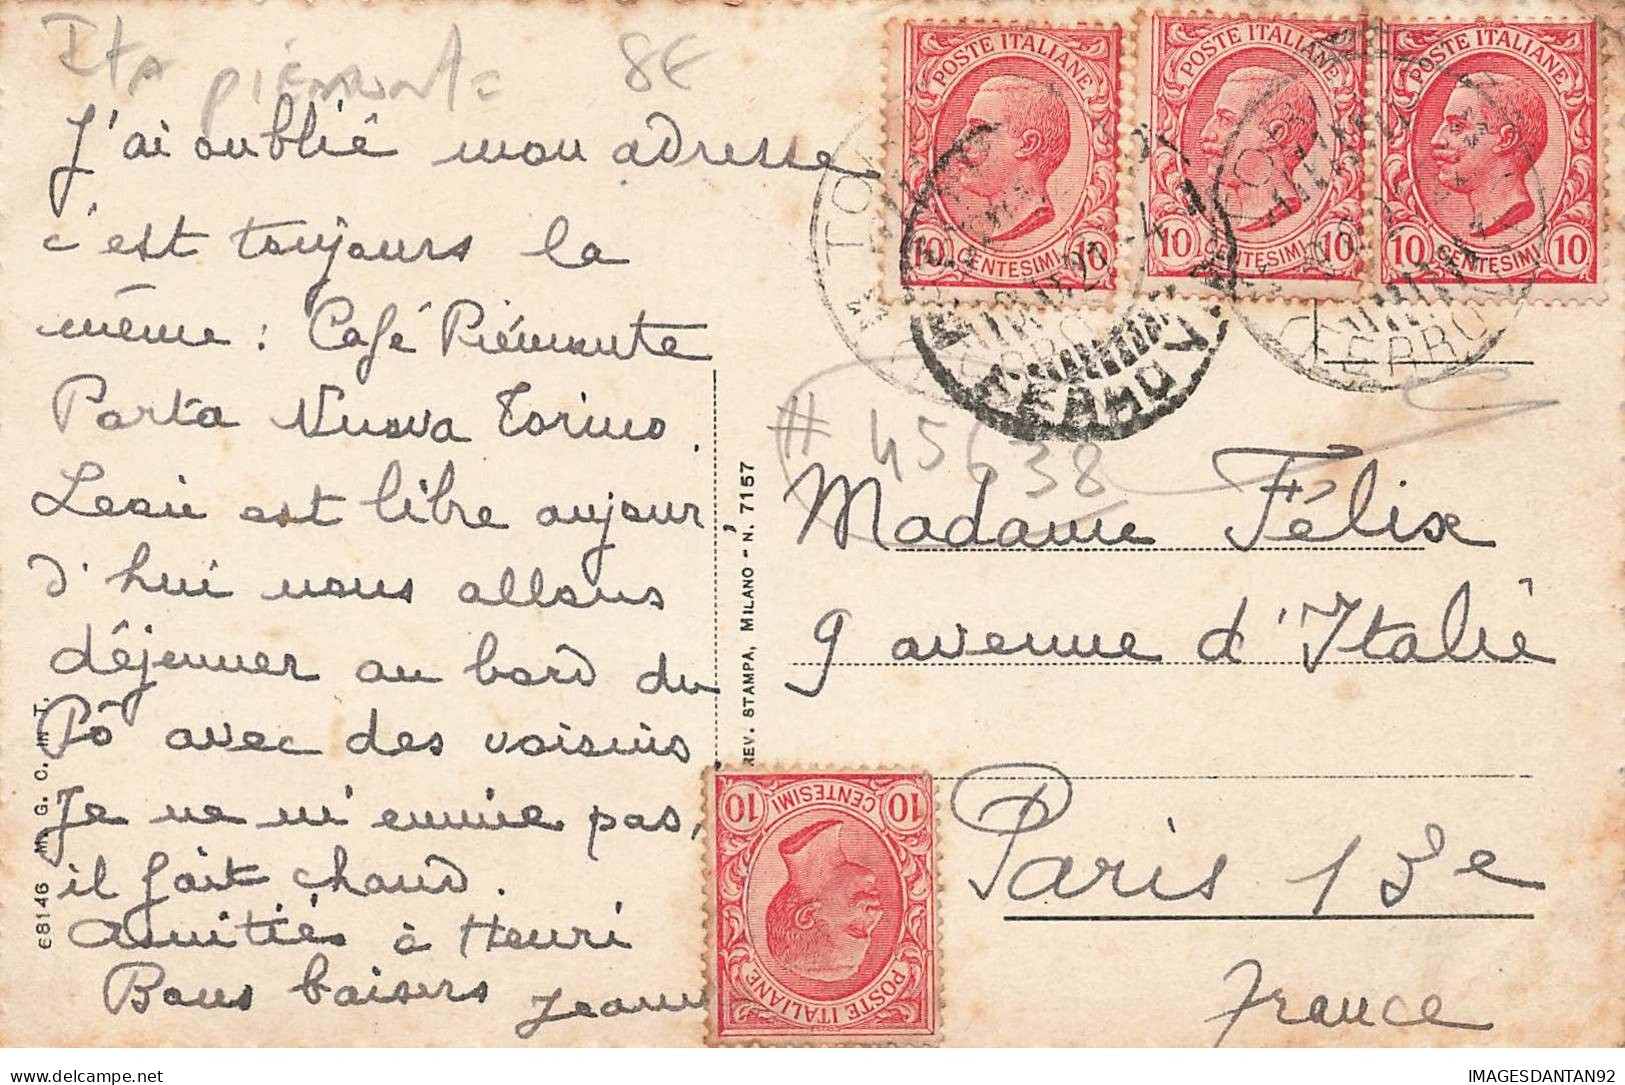 Ita Piémonte 8€
J'ai oublié mon adresse
c'est toujours la
même : Café Piémonte
Porta Nuova Torino.
est libre aujour
d'hui nous allons
déjeuner au bord du
Pô avec des voisins
Je ne m'ennuie pas,
il fait chaud.
Amitiés à Henri
Bons baisers
68146 M. G. C. in T.
REV. STAMPA, MILANO - N. 7157
POSTE ITALIANE
10 CENTESIMI 10
POSTE ITALIANE
10 CENTESIMI 10
POSTE ITALIANE
10 CENTESIMI 10
# 45638
Madame Félix
9 avenue d'Italie
Paris 13e
France
POSTE ITALIANE
10 CENTESIMI 10
IMAGESDANTAN92